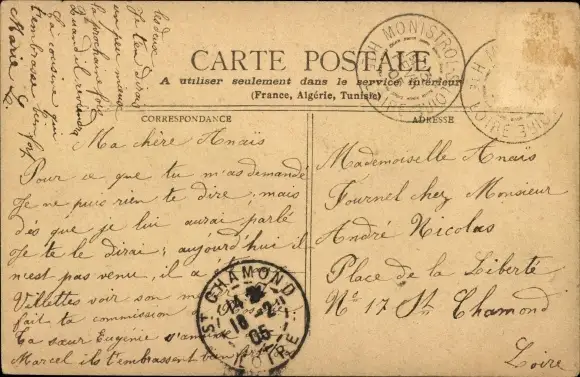 CARTE POSTALE
A utiliser seulement dans le service intérieur
(France, Algérie, Tunisie)
CORRESPONDANCE
ADRESSE
Ma chère Anaïs
Pour ce que tu m'as demandé
Je ne puis rien te dire; mais
dès que je lui aurai parlé
Je te le dirai; aujourd'hui il
n'est pas venu, il a
Villettes voir son
fait ta commission
Ta sœur Eugénie
Marcel ils t'embrassent bien
les deux
Je te dirai
un peu mieux
la prochaine fois
Quand il reviendra
Ta cousine qui
t'embrasse bien fort
Marie
Mademoiselle Anaïs
Fournel chez Monsieur
André Nicolas
Place de la Liberté
No 17 St Chamond
Loire
MONISTROL
HTE LOIRE
ST CHAMOND
18 -2
05
LOIRE